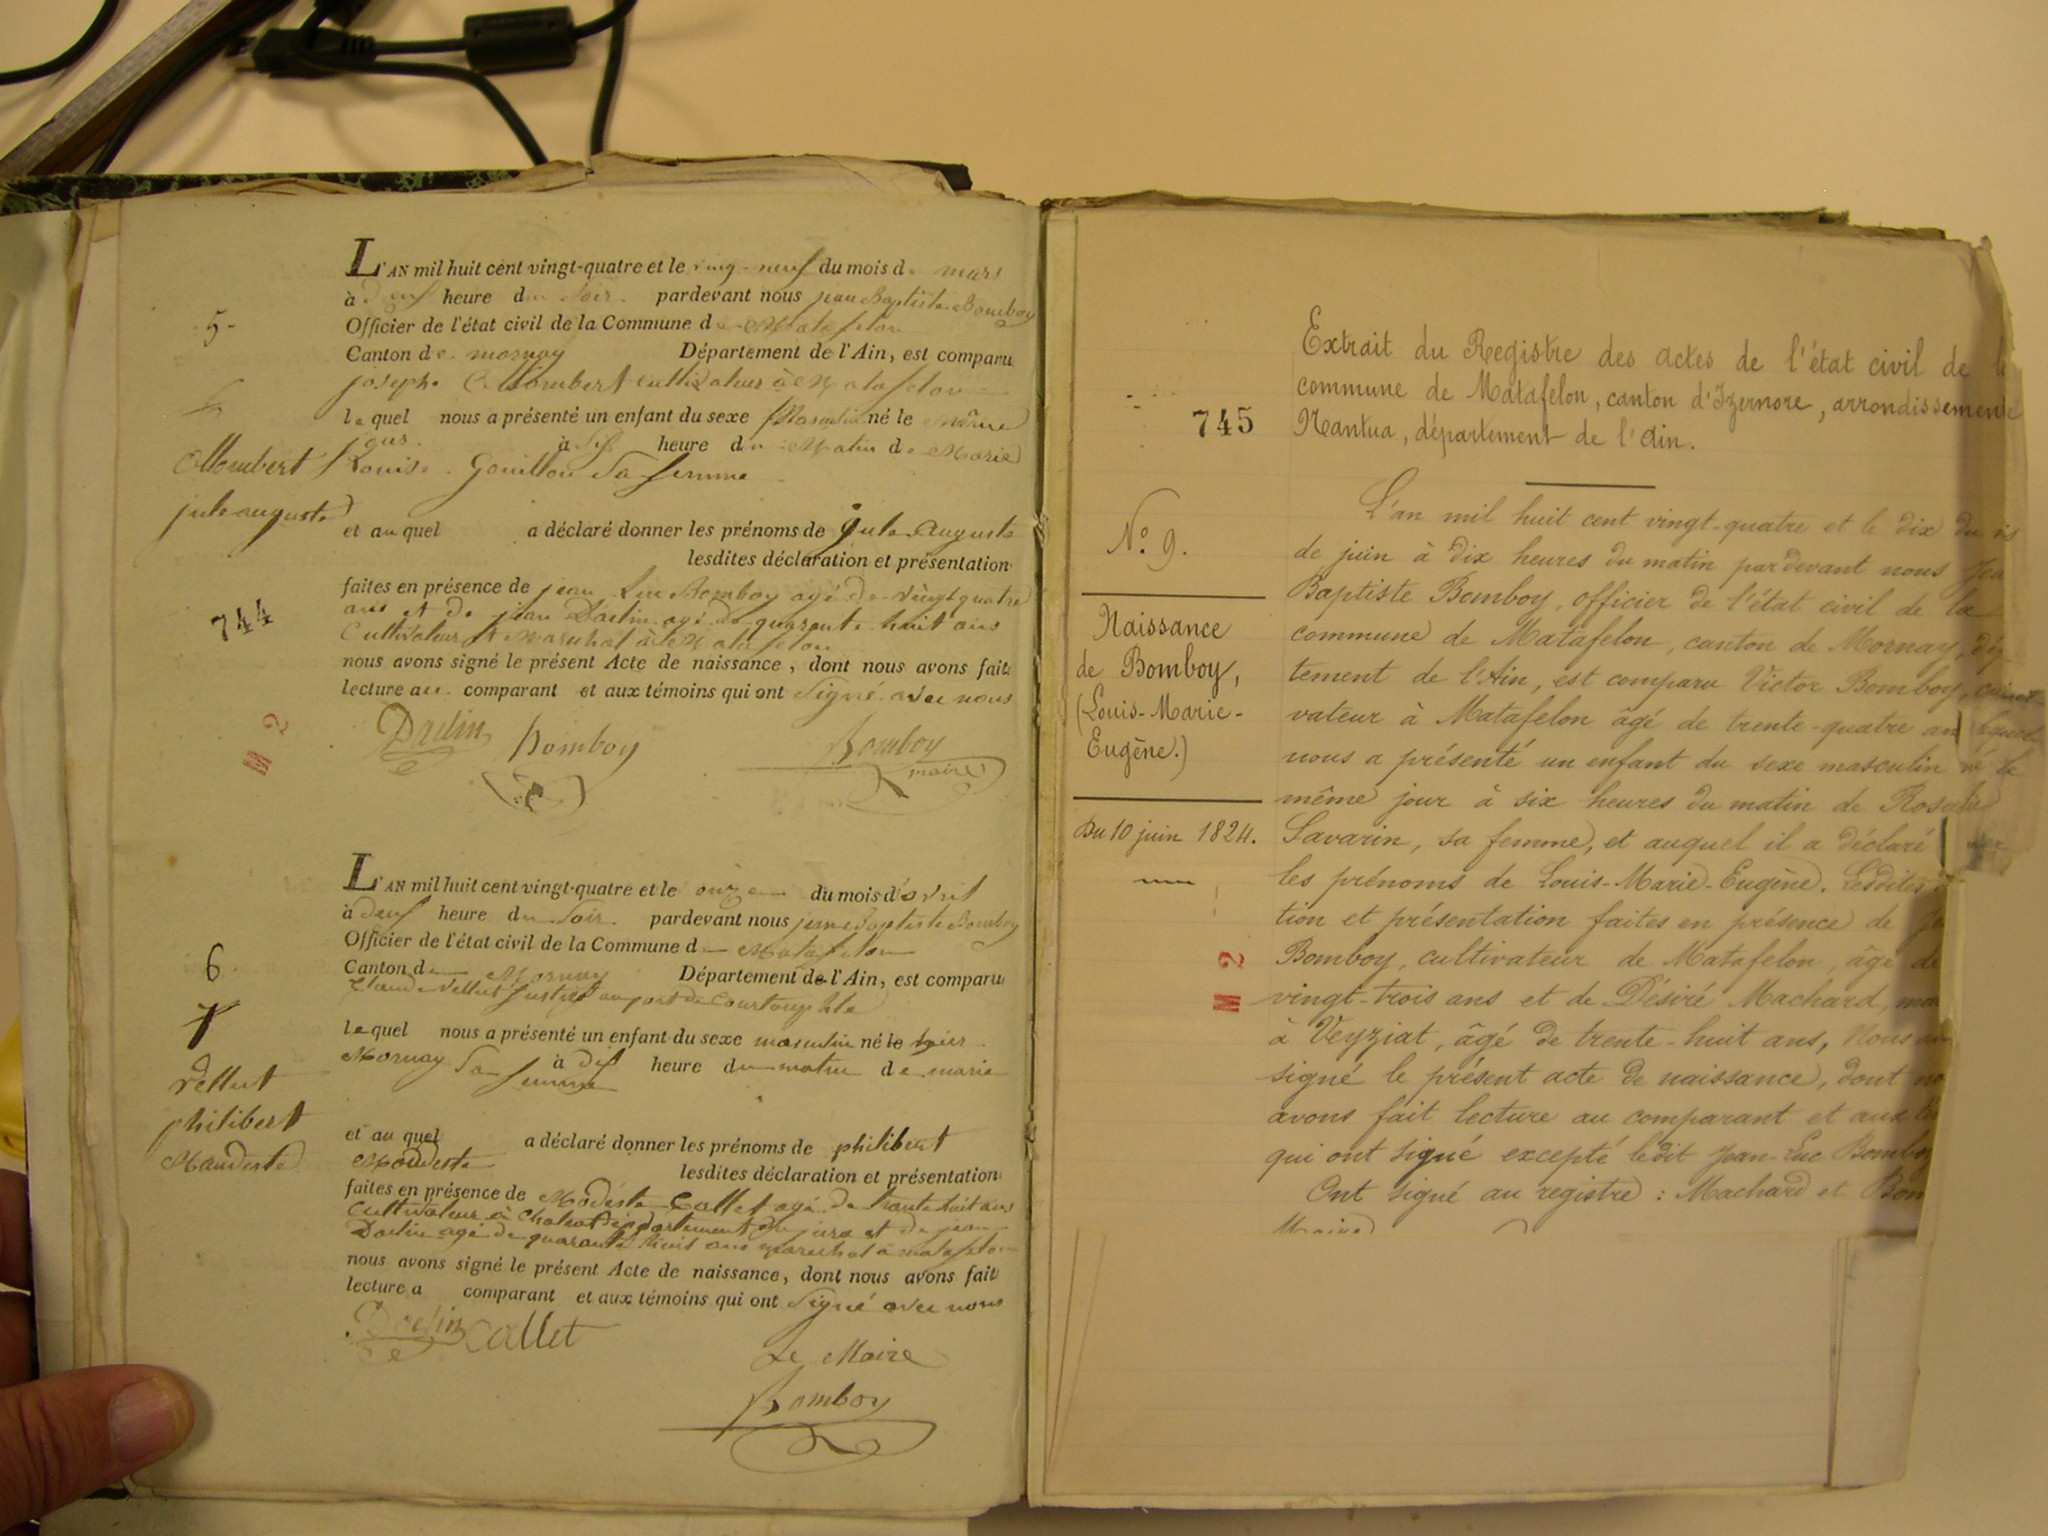 5
Allombert
jule auguste
744
M 2
L'AN mil huit cent vingt-quatre et le ving-neuf du mois de mars
à deuf heure du soir pardevant nous jean Baptiste Bomboy
Officier de l'état civil de la Commune de Matafelon
Canton de mornay Département de l'Ain, est comparu
joseph Allombert cultivateur à Matafelon
lequel nous a présenté un enfant du sexe Masculin né le même
jour à heure du Matin de Marie
Louise Gouillou sa femme
et auquel a déclaré donner les prénoms de jule Auguste
lesdites déclaration et présentation
faites en présence de jean Luc Bomboy agé de vingt quatre
ans et de jean Darlin agé de quarente huit ans
Cultivateur et Marechal à Matafelon
nous avons signé le présent Acte de naissance, dont nous avons fait
lecture au comparant et aux témoins qui ont signé avec nous
Darlin Bomboy Bomboy
maire
6
7
vellut
philibert
Maudeste
L'AN mil huit cent vingt-quatre et le onze du mois d'avril
à deuf heure du soir pardevant nous jean Baptiste Bomboy
Officier de l'état civil de la Commune de Matafelon
Canton de Mornay Département de l'Ain, est comparu
Claude Vellut au port de
lequel nous a présenté un enfant du sexe masculin né le hier
à dif heure du matin de marie
Mornay sa femme
et au quel a déclaré donner les prénoms de philibert
Modeste
lesdites déclaration et présentation
faites en présence de Modeste Collet agé de trante huit ans
Cultivateur à département du jura et de jean
Darlin agé de quarante huit ans marechal à matafelon
nous avons signé le présent Acte de naissance, dont nous avons fait
lecture a comparant et aux témoins qui ont signé avec nous
Darlin Collet
Le Maire
Bomboy
745
Extrait du Registre des actes de l'état civil de la
commune de Matafelon, canton d'Izernore, arrondissement
Nantua, département de l'Ain.
N° 9.
Naissance
de Bomboy,
(Louis-Marie-
Eugène.)
Du 10 juin 1824.
M 2
L'an mil huit cent vingt-quatre et le dix du
de juin à dix heures du matin pardevant nous Jean
Baptiste Bomboy, officier de l'état civil de la
commune de Matafelon, canton de Mornay, dép
tement de l'Ain, est comparu Victor Bomboy,
vateur à Matafelon âgé de trente-quatre an lequel
nous a présenté un enfant du sexe masculin né le
même jour à six heures du matin de Rosalie
Savarin, sa femme, et auquel il a déclaré
les prénoms de Louis-Marie-Eugène. Lesdites
tion et présentation faites en présence de
Bomboy, cultivateur de Matafelon, âgé de
vingt-trois ans et de Désiré Machard,
à Veyziat, âgé de trente-huit ans, Nous
signé le présent acte de naissance, dont
avons fait lecture au comparant et aux
qui ont signé excepté ledit Jean-Luc Bomboy
Ont signé au registre : Machard et Bom